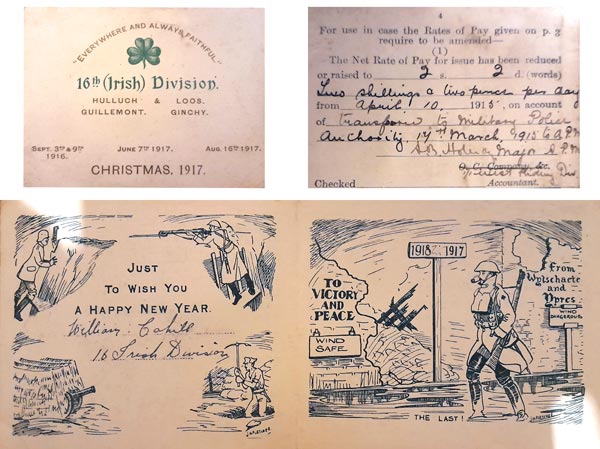 "EVERYWHERE AND ALWAYS FAITHFUL"
16th (Irish) Division.
HULLUCH & LOOS.
GUILLEMONT. GINCHY.
SEPT. 3RD & 9TH 1916.
JUNE 7TH 1917.
AUG. 16TH 1917.
CHRISTMAS, 1917.
4
For use in case the Rates of Pay given on p. 3
require to be amended—
(1)
The Net Rate of Pay for issue has been reduced
or raised to 2 s. 2 d. (words)
Two shillings & two pence per day
from April 10, 1915, on account
of transfer to Military Police
Authority 14th March, 1915
Major
O. C. Company, &c.
Checked
Accountant.
JUST
TO WISH YOU
A HAPPY NEW YEAR.
William Cahill
16 Irish Division
1918 1917
TO
VICTORY
AND
PEACE
WIND
SAFE
From
Wytschaete
and
Ypres.
WIND
DANGEROUS
THE LAST!